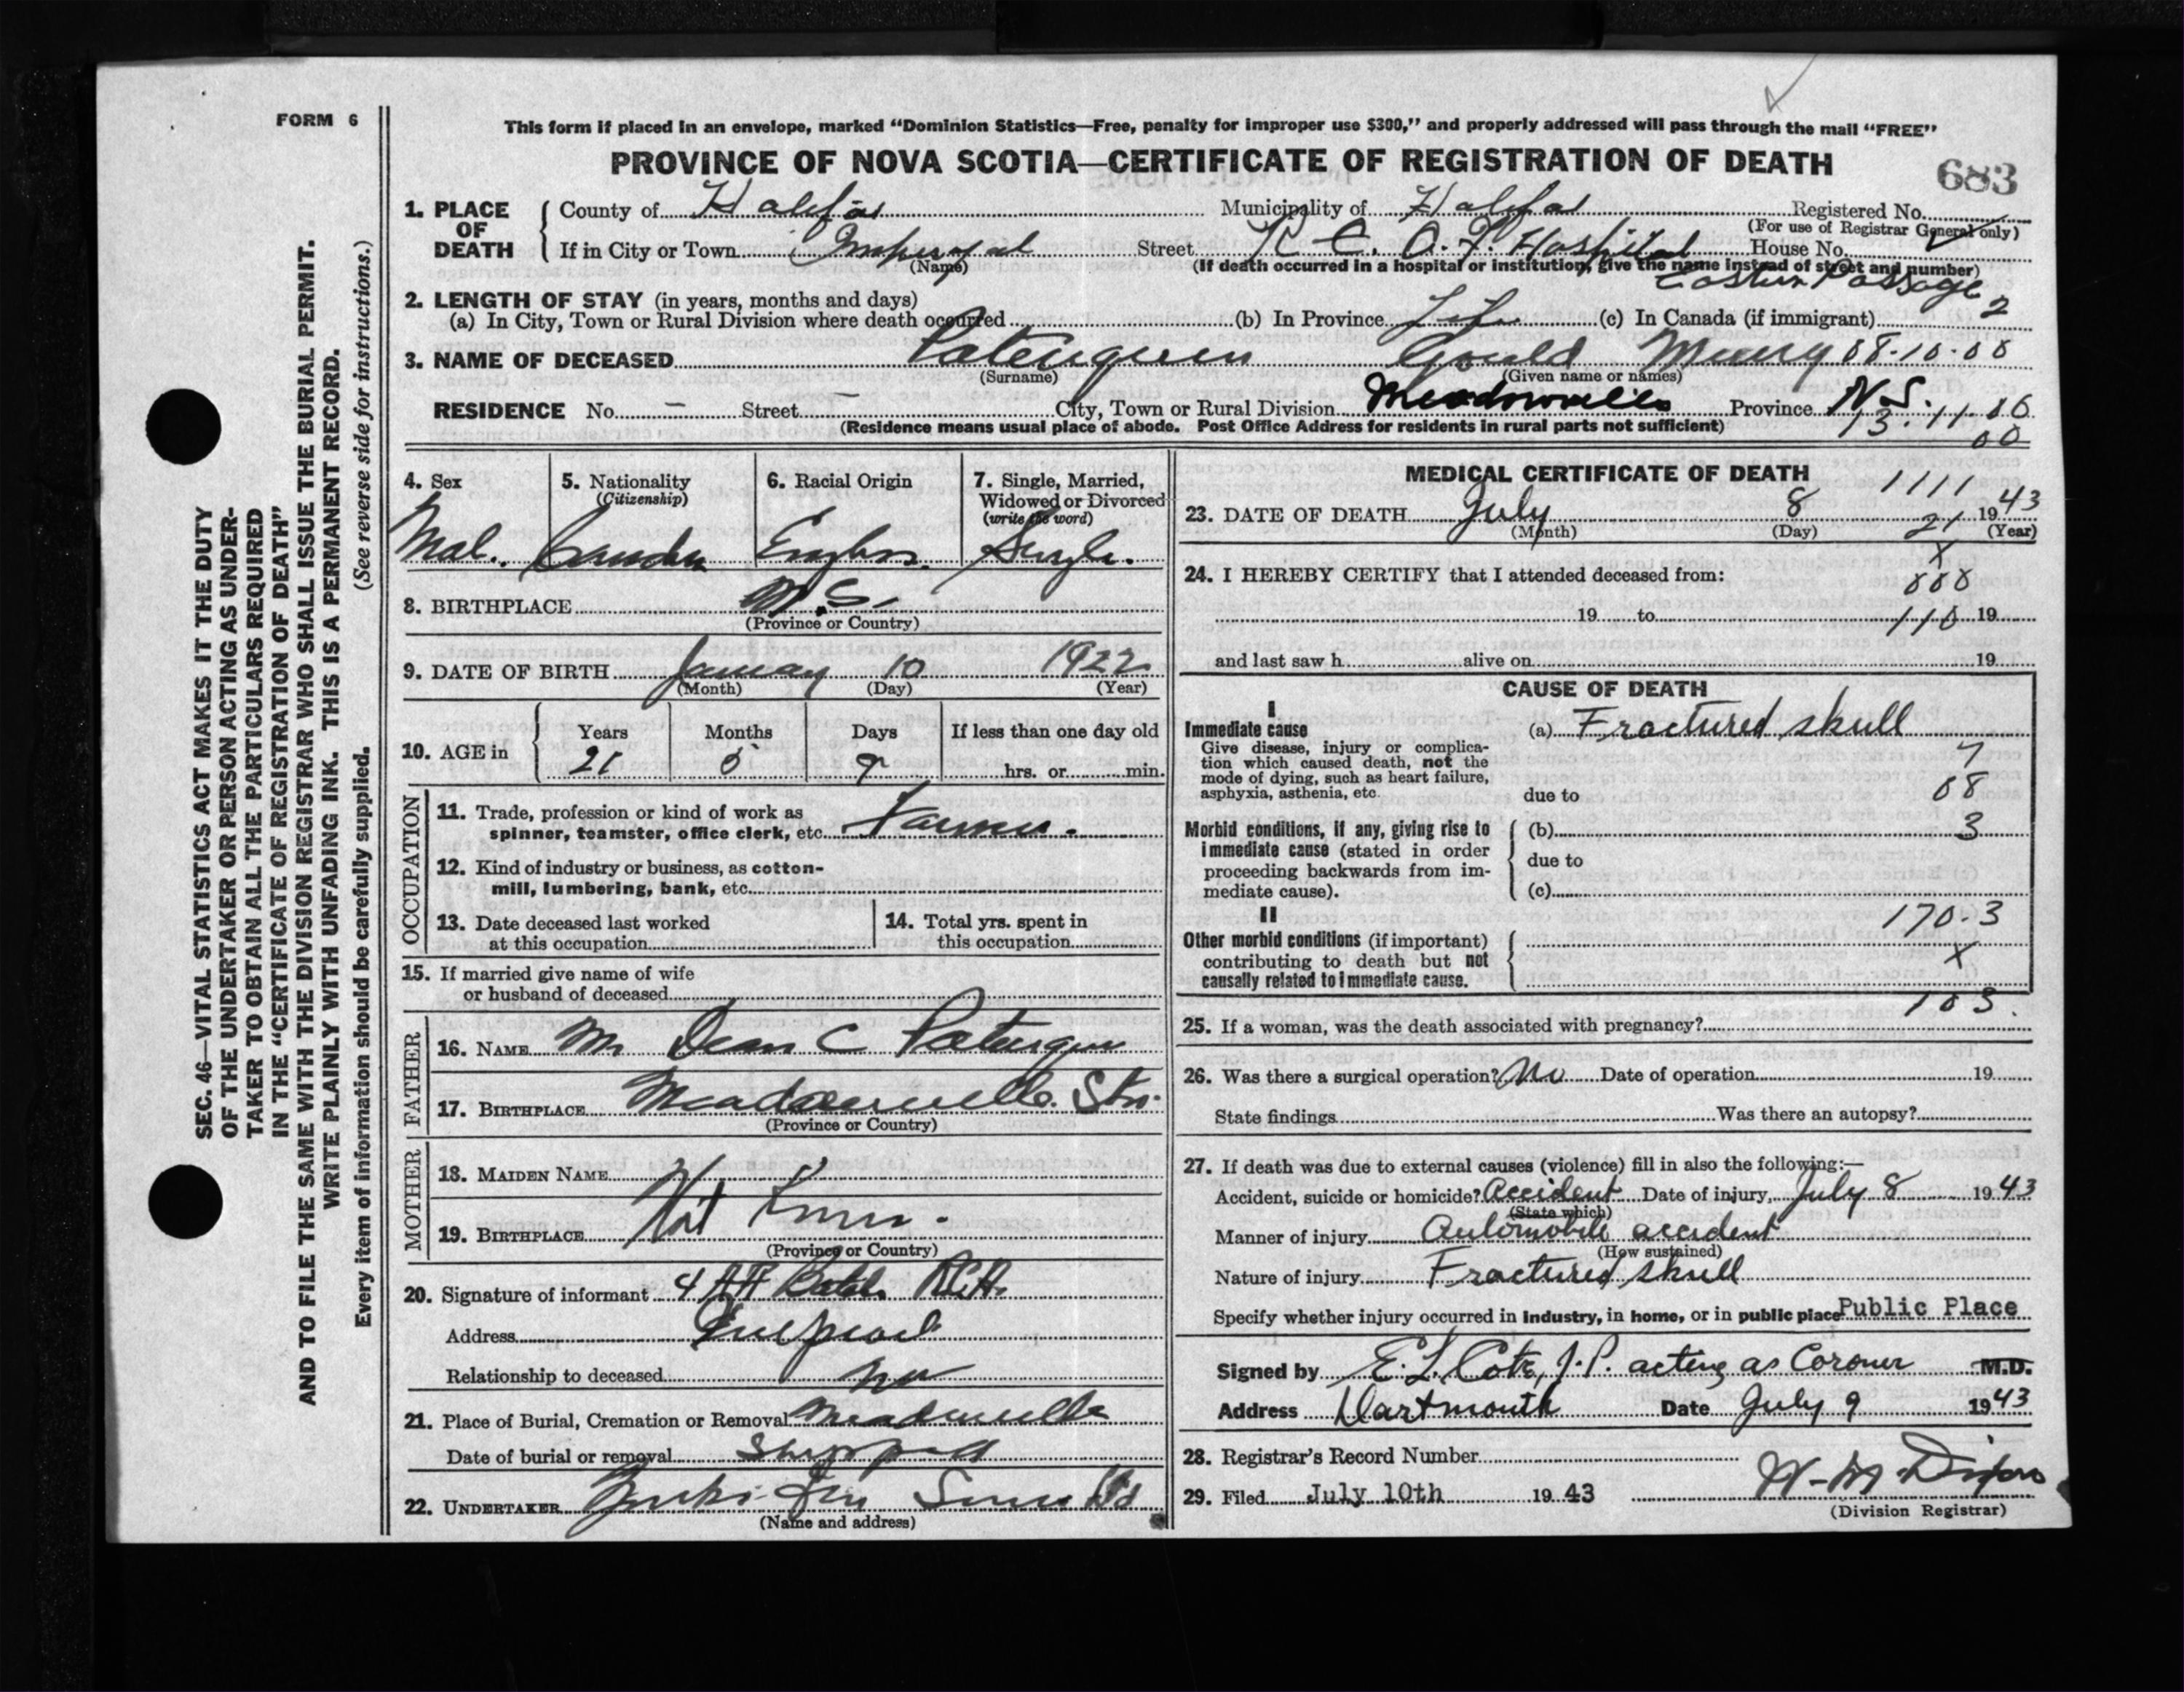 FORM 6
This form if placed in an envelope, marked “Dominion Statistics—Free, penalty for improper use $300,” and properly addressed will pass through the mail “FREE”
PROVINCE OF NOVA SCOTIA—CERTIFICATE OF REGISTRATION OF DEATH
683
1. PLACE OF DEATH
County of Halifax Municipality of Halifax Registered No.
(For use of Registrar General only)
If in City or Town Street R C. A. F. Hospital House No.
(Name) (If death occurred in a hospital or institution, give the name instead of street and number)
Eastern Passage
2. LENGTH OF STAY (in years, months and days)
(a) In City, Town or Rural Division where death occurred (b) In Province Life (c) In Canada (if immigrant) 2
3. NAME OF DECEASED Patriquin Gould Murry 08-10-00
(Surname) (Given name or names)
RESIDENCE No. — Street — City, Town or Rural Division Meadowville Province N.S.
13.11.06
00
(Residence means usual place of abode. Post Office Address for residents in rural parts not sufficient)
4. Sex
Mal.
5. Nationality
(Citizenship)
6. Racial Origin
7. Single, Married,
Widowed or Divorced
(write the word)
Single.
8. BIRTHPLACE N.S.
(Province or Country)
9. DATE OF BIRTH January 10 1922
(Month) (Day) (Year)
10. AGE in
Years Months Days If less than one day old
21 5 9 hrs. or min.
OCCUPATION
11. Trade, profession or kind of work as
spinner, teamster, office clerk, etc. Farmer.
12. Kind of industry or business, as cotton-
mill, lumbering, bank, etc.
13. Date deceased last worked
at this occupation
14. Total yrs. spent in
this occupation
15. If married give name of wife
or husband of deceased
FATHER
16. NAME Mr Dean C Patriquin
17. BIRTHPLACE Meadowville Stn.
(Province or Country)
MOTHER
18. MAIDEN NAME
19. BIRTHPLACE Not Known.
(Province or Country)
20. Signature of informant
Address
Relationship to deceased
21. Place of Burial, Cremation or Removal Meadowville
Date of burial or removal Shipped
22. UNDERTAKER
(Name and address)
MEDICAL CERTIFICATE OF DEATH
1111
23. DATE OF DEATH July 8 1943
21
(Month) (Day) (Year)
X
24. I HEREBY CERTIFY that I attended deceased from:
000
19 to 110 19
and last saw h alive on 19
CAUSE OF DEATH
I
Immediate cause (a) Fractured skull
Give disease, injury or complica-
tion which caused death, not the
mode of dying, such as heart failure,
asphyxia, asthenia, etc.
7
due to 08
Morbid conditions, if any, giving rise to
immediate cause (stated in order
proceeding backwards from im-
mediate cause).
(b) 3
due to
(c)
II
170-3
Other morbid conditions (if important)
contributing to death but not
causally related to immediate cause.
X
103.
25. If a woman, was the death associated with pregnancy?
26. Was there a surgical operation? No Date of operation 19
State findings Was there an autopsy?
27. If death was due to external causes (violence) fill in also the following:—
Accident, suicide or homicide? Accident Date of injury, July 8 1943
(State which)
Manner of injury Automobile accident
(How sustained)
Nature of injury Fractured skull
Specify whether injury occurred in industry, in home, or in public place Public Place
Signed by E. L. Cote, J.P. acting as Coroner M.D.
Address Dartmouth Date July 9 1943
28. Registrar’s Record Number
29. Filed July 10th 1943 W. M. Dixon
(Division Registrar)
SEC. 46—VITAL STATISTICS ACT MAKES IT THE DUTY
OF THE UNDERTAKER OR PERSON ACTING AS UNDER-
TAKER TO OBTAIN ALL THE PARTICULARS REQUIRED
IN THE “CERTIFICATE OF REGISTRATION OF DEATH”
AND TO FILE THE SAME WITH THE DIVISION REGISTRAR WHO SHALL ISSUE THE BURIAL PERMIT.
WRITE PLAINLY WITH UNFADING INK. THIS IS A PERMANENT RECORD.
Every item of information should be carefully supplied. (See reverse side for instructions.)